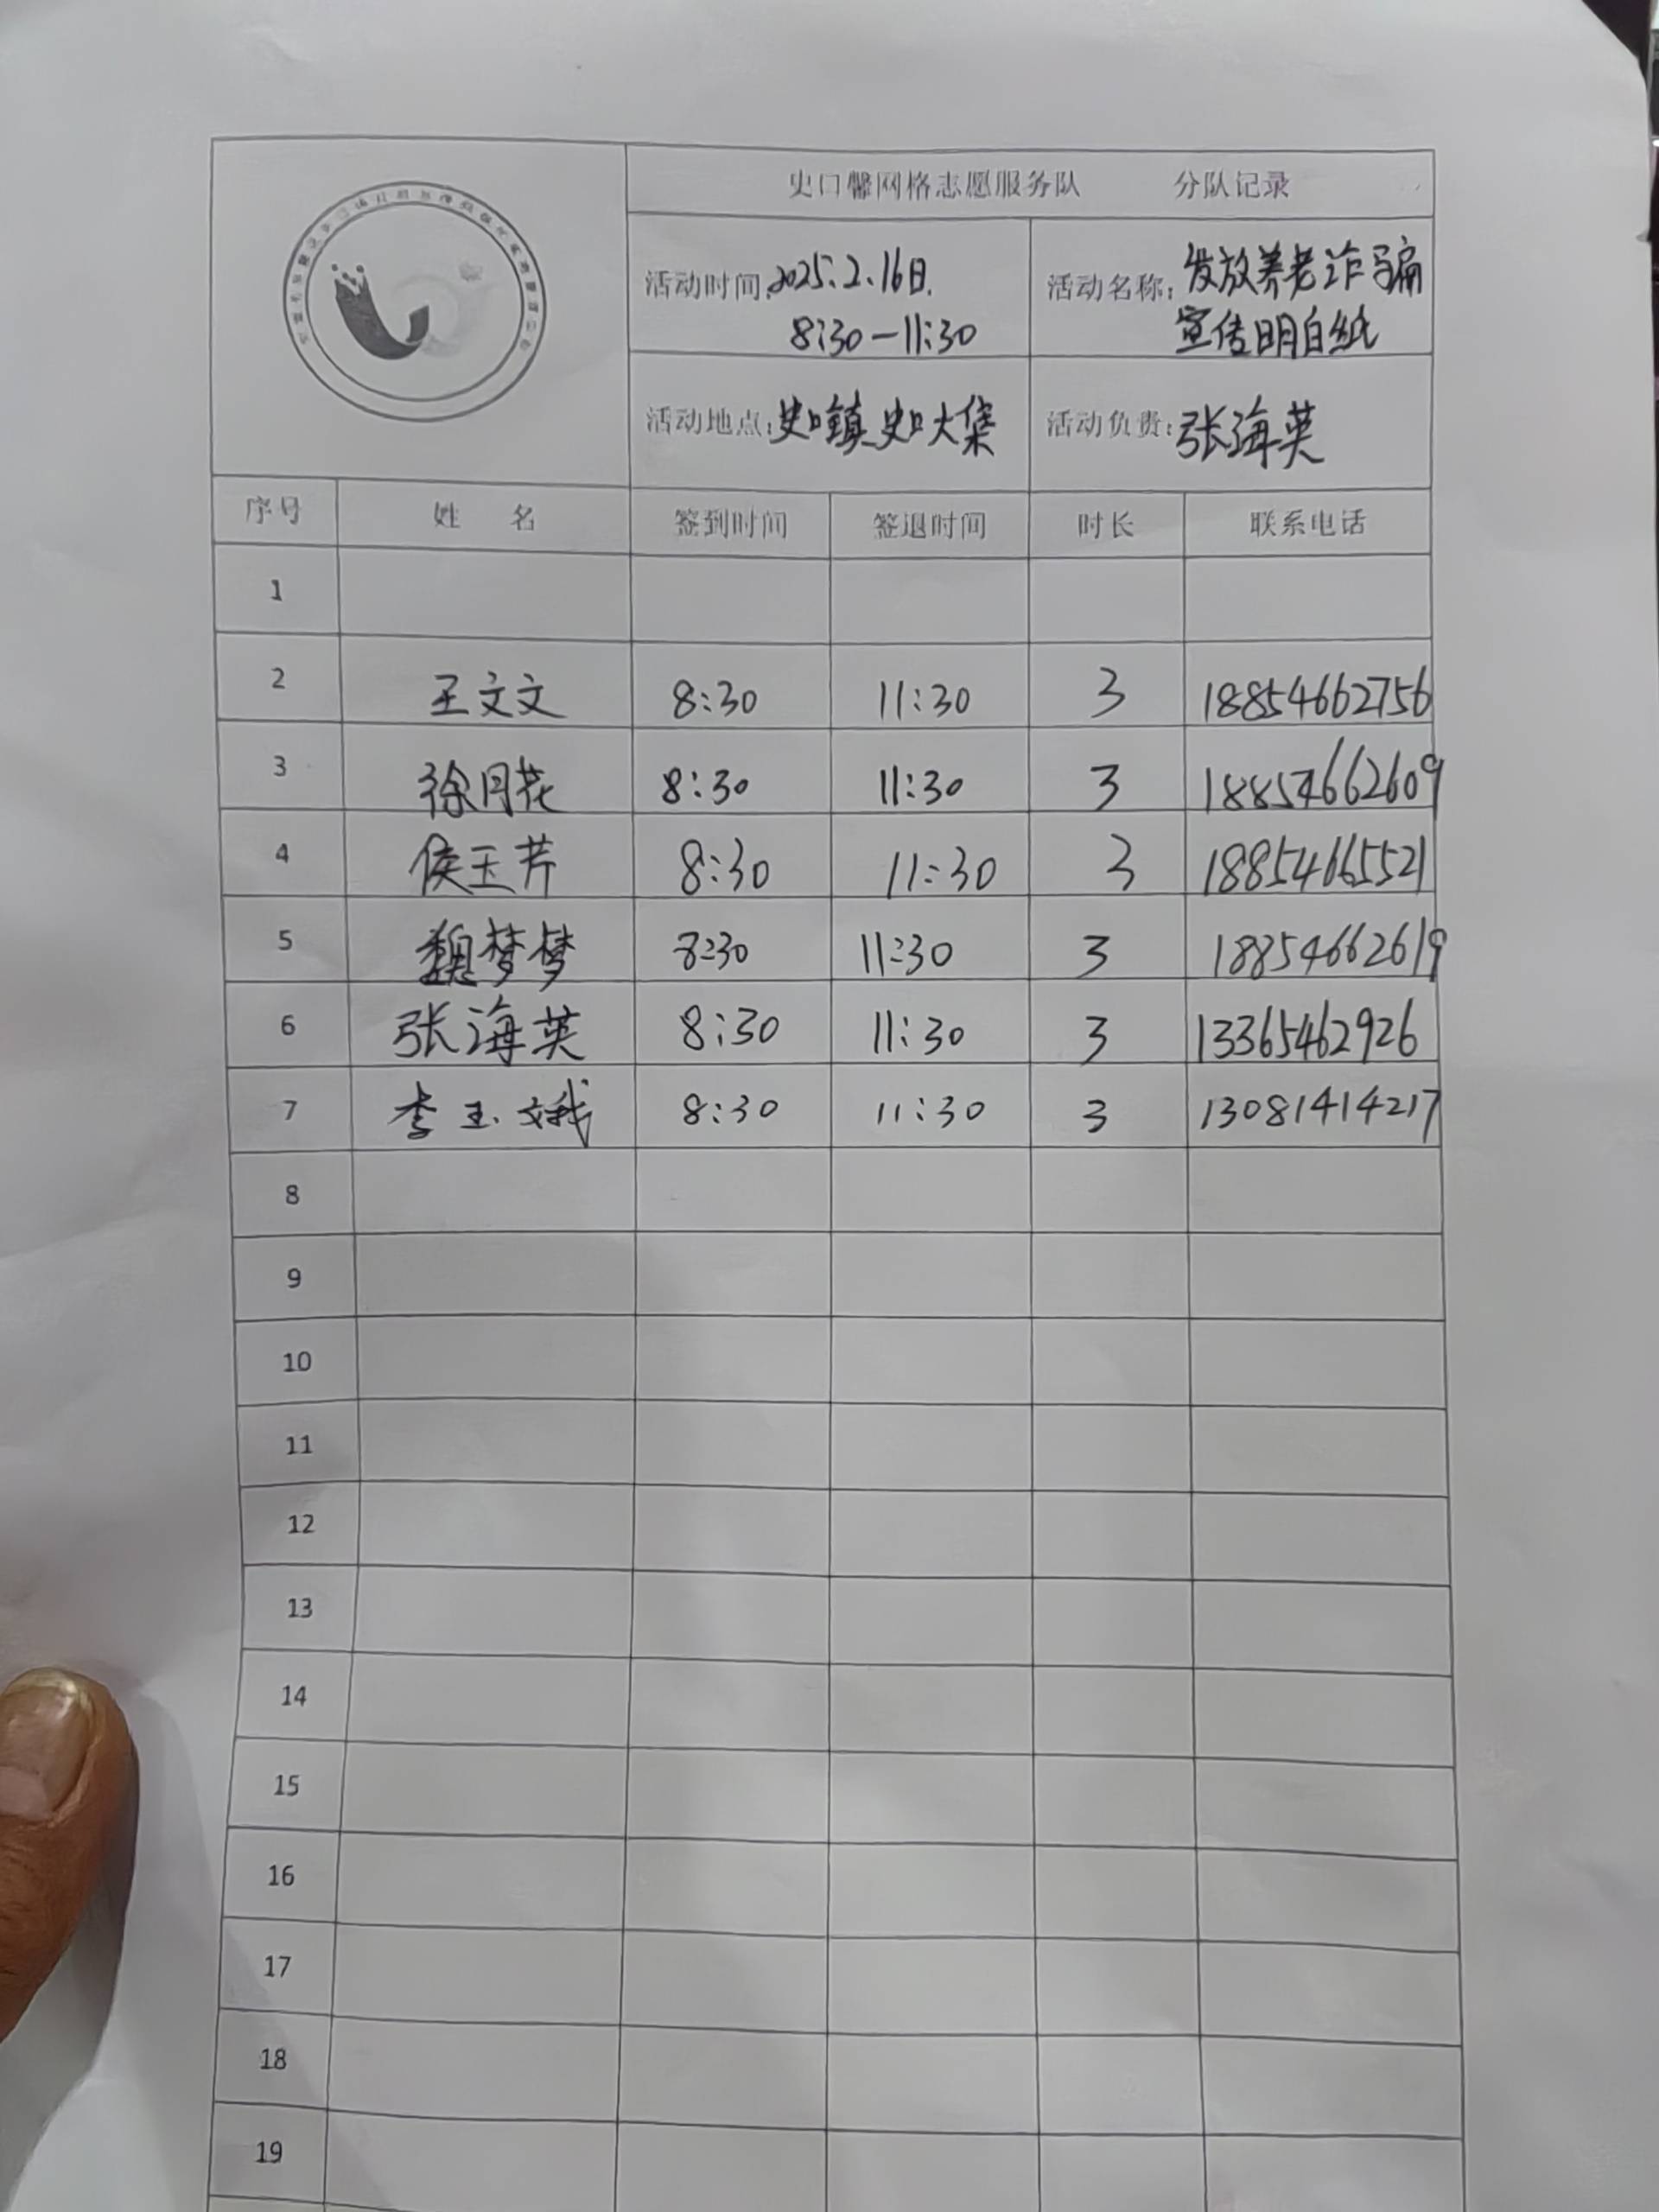 史口馨网格志愿服务队 分队记录
活动时间:2025.2.16日.
8:30—11:30
活动名称:发放养老诈骗
宣传明白纸
活动地点:史口镇史口大集
活动负责:张海英
序号 姓 名 签到时间 签退时间 时长 联系电话
1
2 王文文 8:30 11:30 3 18854662756
3 徐月花 8:30 11:30 3 18854662609
4 侯玉芹 8:30 11:30 3 18854665521
5 魏梦梦 8:30 11:30 3 18854662619
6 张海英 8:30 11:30 3 13365462926
7 李玉娥 8:30 11:30 3 13081414217
8
9
10
11
12
13
14
15
16
17
18
19